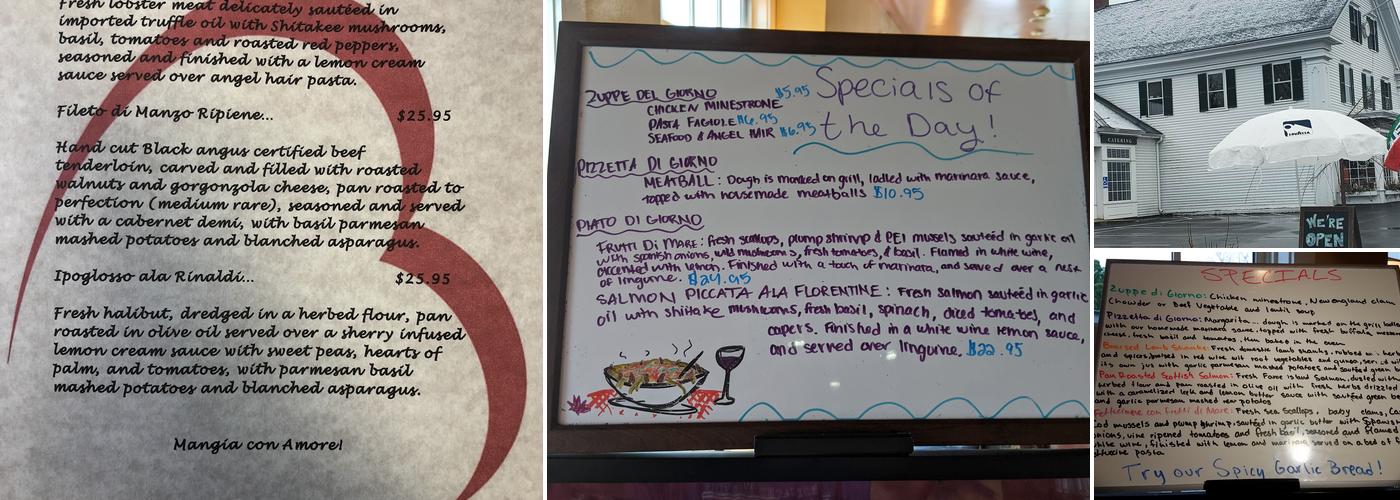 Fresh lobster meat delicately sautéed in
imported truffle oil with Shitakee mushrooms,
basil, tomatoes and roasted red peppers,
seasoned and finished with a lemon cream
sauce served over angel hair pasta.
Fileto di Manzo Ripiene... $25.95
Hand cut Black angus certified beef
tenderloin, carved and filled with roasted
walnuts and gorgonzola cheese, pan roasted to
perfection (medium rare), seasoned and served
with a cabernet demi, with basil parmesan
mashed potatoes and blanched asparagus.
Ipoglosso ala Rinaldi... $25.95
Fresh halibut, dredged in a herbed flour, pan
roasted in olive oil served over a sherry infused
lemon cream sauce with sweet peas, hearts of
palm, and tomatoes, with parmesan basil
mashed potatoes and blanched asparagus.
Mangia con Amore!
Specials of
the Day!
ZUPPE DEL GIORNO
CHICKEN MINESTRONE $5.95
PASTA FAGIOLE $6.95
SEAFOOD & ANGEL HAIR $6.95
PIZZETTA DI GIORNO
MEATBALL: Dough is marked on grill, ladled with marinara sauce,
topped with housemade meatballs $10.95
PIATO DI GIORNO
FRUTTI DI MARE: fresh scallops, plump shrimp & PEI mussels sautéed in garlic oil
with spanish onions, wild mushrooms, fresh tomatoes, & basil. Flamed in white wine,
accented with lemon. Finished with a touch of marinara, and served over a nest
of linguine. $24.95
SALMON PICCATA ALA FLORENTINE: Fresh salmon sautéed in garlic
oil with shiitake mushrooms, fresh basil, spinach, diced tomatoes, and
capers. Finished in a white wine lemon sauce,
and served over linguine. $22.95
CATERING
LAVAZZA
WE'RE
OPEN
SPECIALS
Zuppe di Giorno: Chicken minestrone, New england clam
Chowder or Beef Vegetable and lentil soup
Pizzetta di Giorno: Margarita... dough is marked on the grill, ladled
with our homemade marinara sauce, topped with fresh buffalo
cheese, basil and tomatoes, then baked in the oven
Braised Lamb Shanks: Fresh domestic lamb shanks, rubbed in
and spices, braised in red wine with root vegetables and
its own jus with garlic parmesan mashed potatoes and sautéed green
Pan Roasted Scottish Salmon: Fresh Faroe Island Salmon, dusted with
herbed flour and pan roasted in olive oil with fresh herbs drizzled
with a caramelized leek and lemon butter sauce with sautéed green
and garlic parmesan mashed new potatoes
Fettuccine con Frutti di Mare: Fresh Sea Scallops, baby clams,
Cod mussels and plump shrimp, sautéed in garlic butter with Spanish
onions, vine ripened tomatoes and fresh basil, seasoned and flamed
white wine, finished with lemon and served on a bed of
pasta
Try our Spicy Garlic Bread!